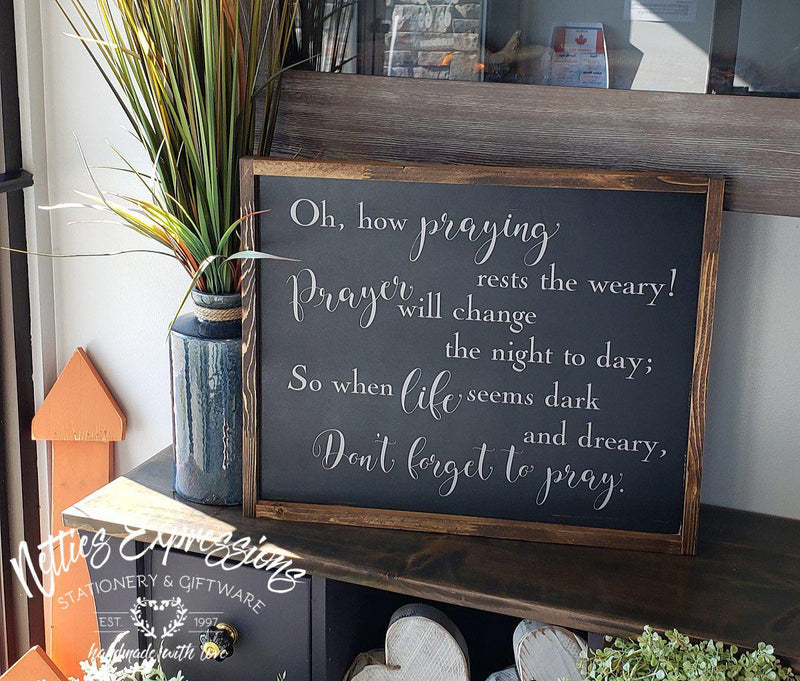 Oh, how praying
rests the weary!
Prayer will change
the night to day;
So when life seems dark
and dreary,
Don't forget to pray.
Netties Expressions
STATIONERY & GIFTWARE
EST. 1997
handmade with love